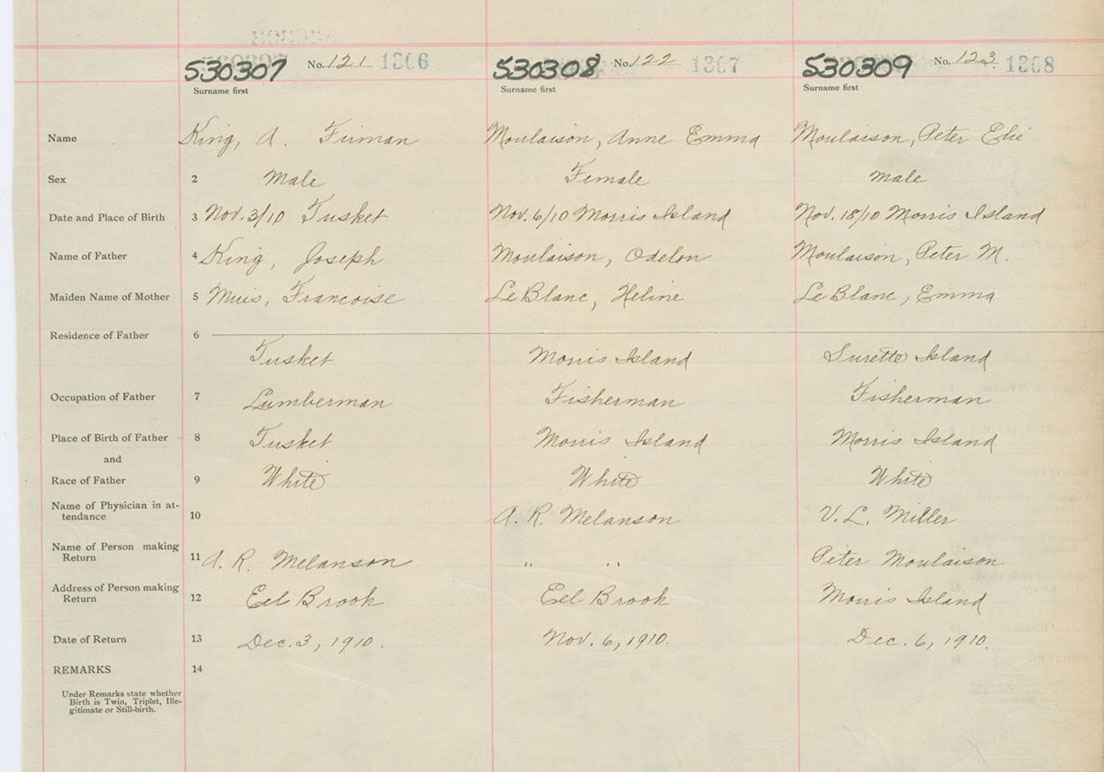 530307 No. 121 1306 530308 No. 122 1307 530309 No. 123 1308
Surname first Surname first Surname first
Name King, A. Firman Moulaison, Anne Emma Moulaison, Peter Elie
Sex 2 Male Female Male
Date and Place of Birth 3 Nov. 3/10 Tusket Nov. 6/10 Morris Island Nov. 18/10 Morris Island
Name of Father 4 King, Joseph Moulaison, Odelon Moulaison, Peter M.
Maiden Name of Mother 5 Muis, Francoise LeBlanc, Heline LeBlanc, Emma
Residence of Father 6
Tusket Morris Island Surette Island
Occupation of Father 7 Lumberman Fisherman Fisherman
Place of Birth of Father 8 Tusket Morris Island Morris Island
and
Race of Father 9 White White White
Name of Physician in at-
tendance 10 A. R. Melanson V. L. Miller
Name of Person making
Return 11 A. R. Melanson " " Peter Moulaison
Address of Person making
Return 12 Eel Brook Eel Brook Morris Island
Date of Return 13 Dec. 3, 1910. Nov. 6, 1910. Dec. 6, 1910.
REMARKS 14
Under Remarks state whether
Birth is Twin, Triplet, Ille-
gitimate or Still-birth.